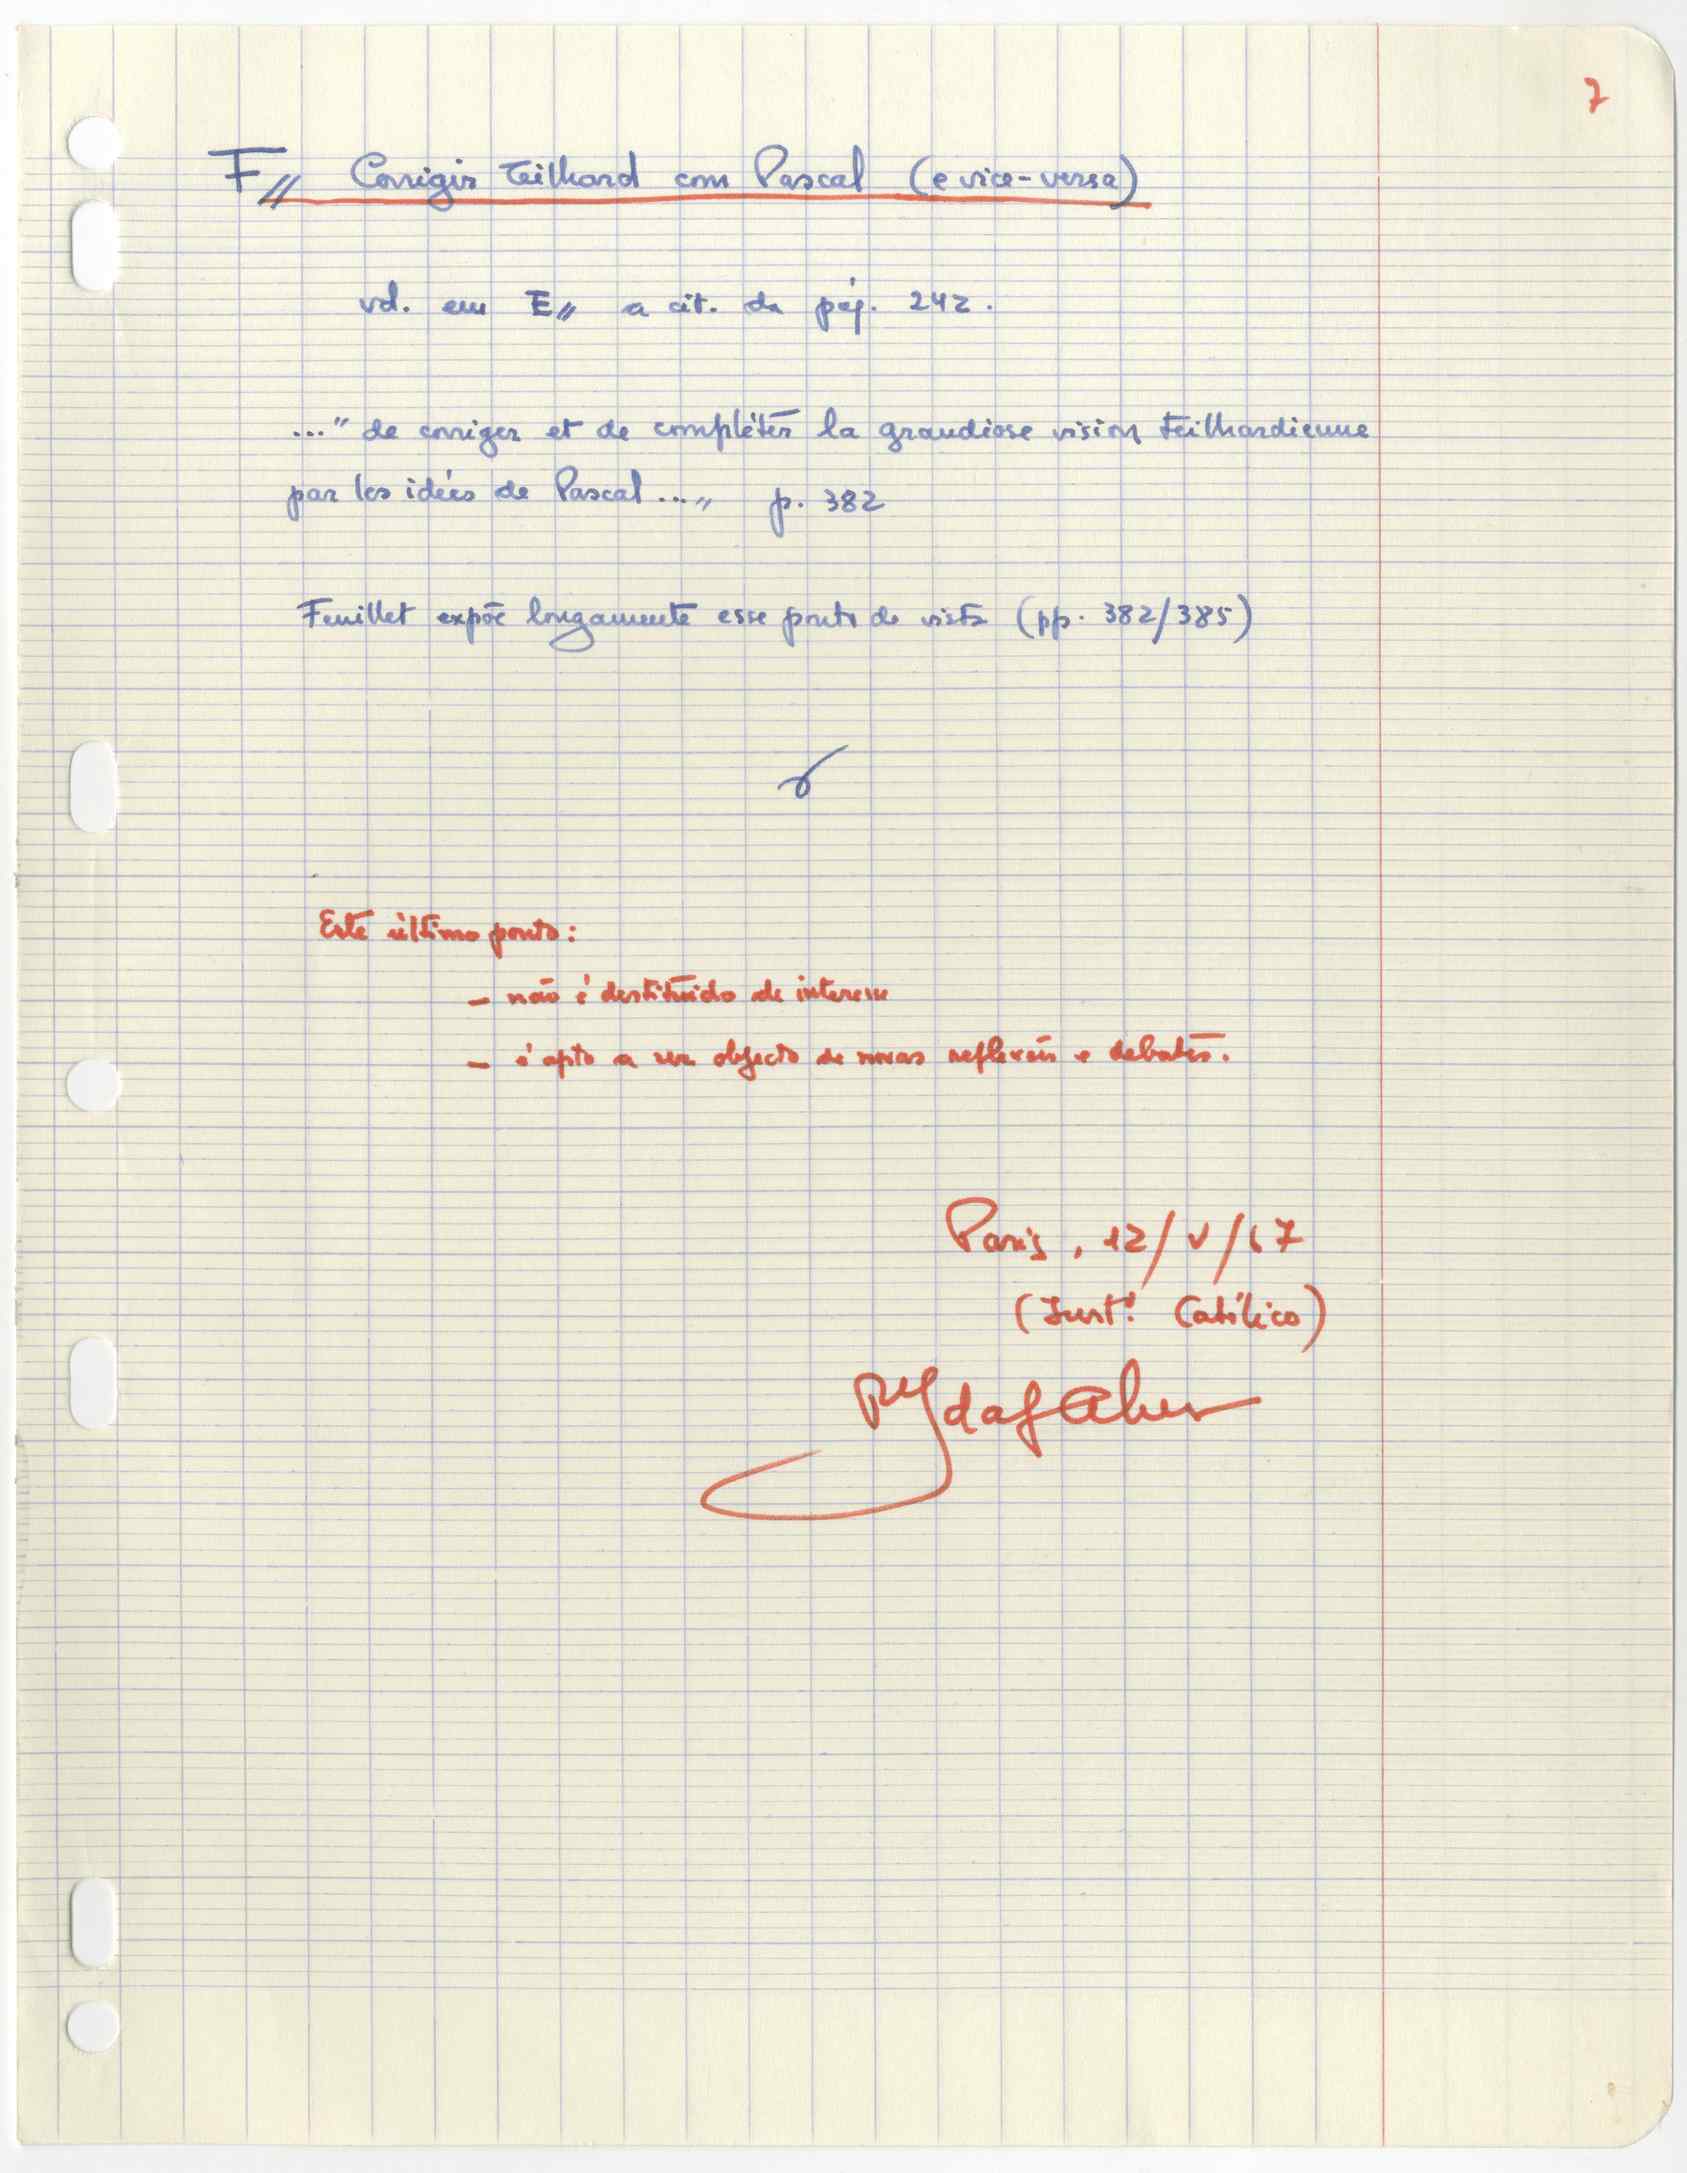 7
F// Corrigir Teilhard com Pascal (e vice-versa)
vd. em E// a cit. da pág. 242.
..." de corriger et de compléter la grandiose vision teilhardienne
par les idées de Pascal ..." p. 382
Feuillet expõe longamente esse ponto de vista (pp. 382/385)
Este último ponto:
- não é destituído de interesse
- é apto a ser objecto de novas reflexões e debates.
Paris, 12/V/67
(Inst. Católico)